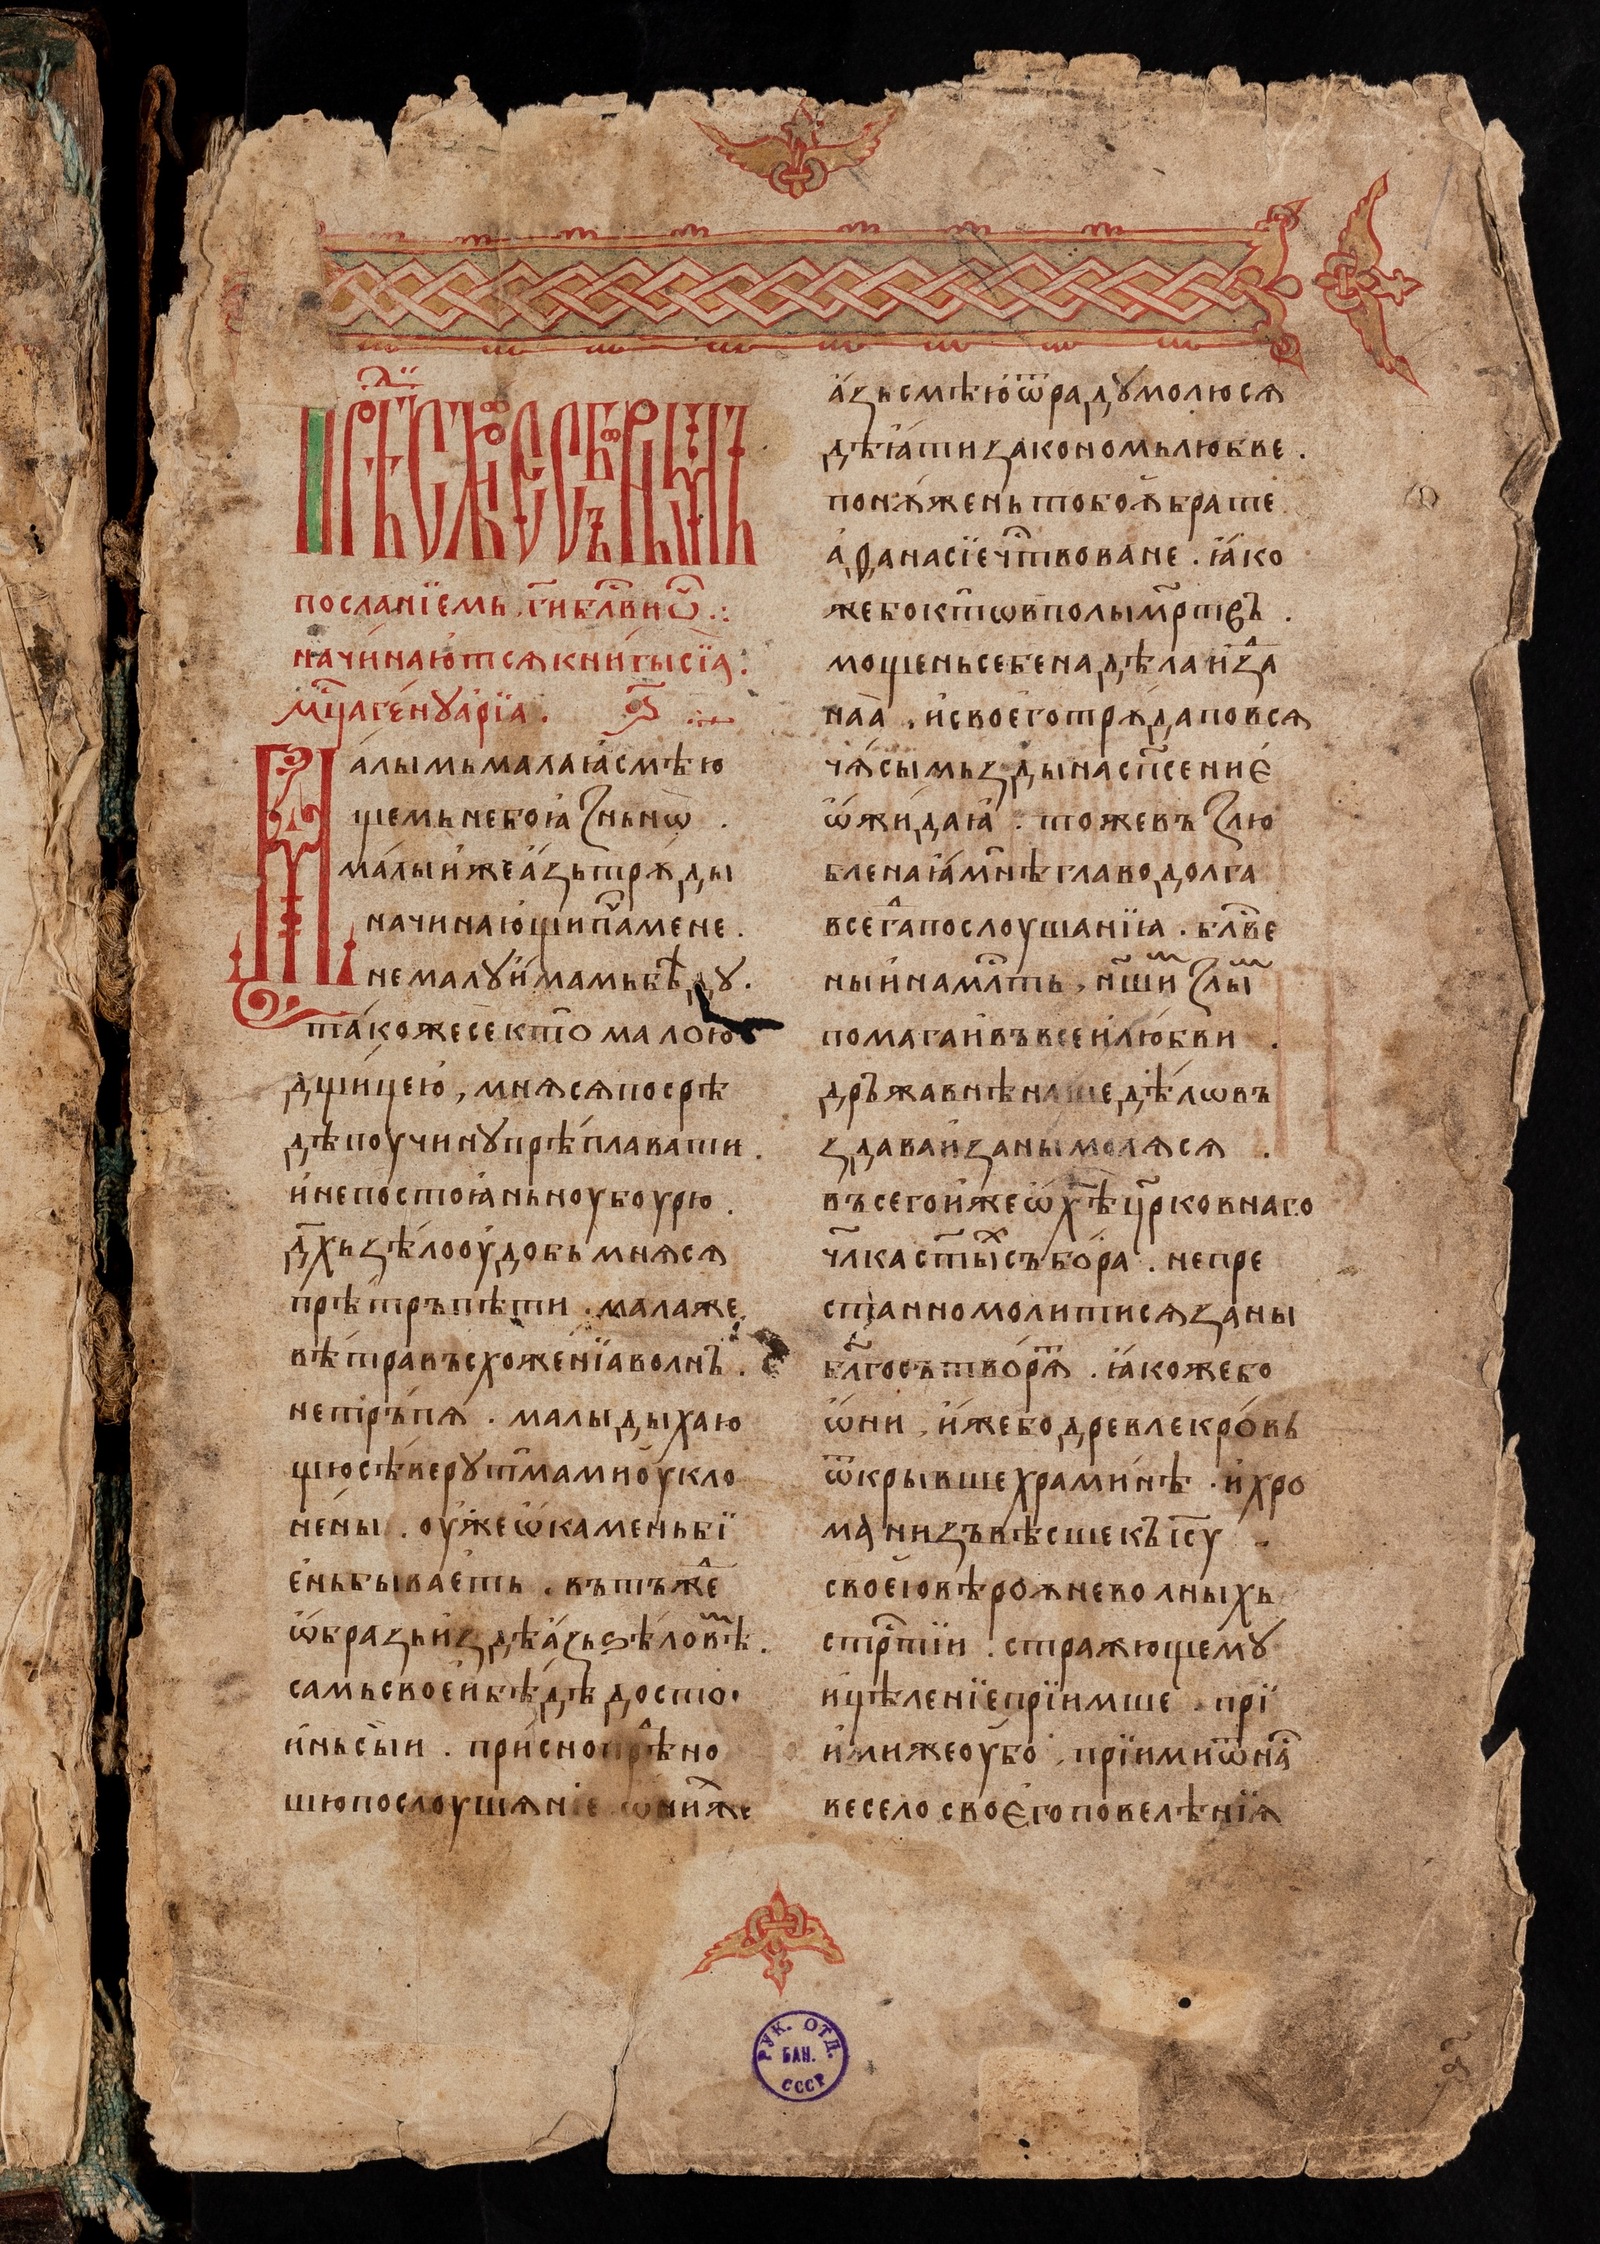 посланїемь . г҃и бл҃в и ѿ .:
начина́ются книгы сїа̀ :
мц҃а генꙋа́рїа .
Малымь мала ꙗ смѣю
щемь не боꙗзньнѡ .
ма́лыи иже а҆зь трꙋды
начинаю҆щи па́мене .
не малꙋ имамь бѣдꙋ .
та́коже се кт҃о малою
дщицею , мнѧсѧ по срѣ
дѣ поучинꙋ прѣплавати .
и не постоꙗ҆ньно убо урю .
дх҃ь ѕѣло оу҆добь мнѧсѧ
прѣтръпѣти . мала же
вѣтра въсхоженїа волнъ .
не тръпѧ . малы дыхаю
щю сѣверꙋ
не́ны . оу҆же ѡ҆ камень бї
е҆нь бывае҆ть . въ тъже
ѡ҆бразь и здѣ а҆зь ѕѣло вѣ .
самь своеи бѣдѣ досто
и҆нь сыи . присно прѣно
шю послоушѧнїе
а҆зь смѣю ѿраду молюсѧ
дѣꙗти закономь любве .
понꙋжень тобоѫ брате
аѳанасїе чт҃воване . ꙗ҆ко
же бо кт҃ѡ в полы мр҃твъ .
мощень себе надѣла и за
наа̀ , и своего трꙋда по всѧ
чѧсы мьзды на сп҃сение҆
ѡ҆жи҆даꙗ . тоже възлю
бленаꙗ мнѣ главо долга
всегда послоушанїꙗ . бл҃ве
ный на мл҃ть ,
помагаи въ всеи любви .
дръжавнѣ наше дѣлѡ въ
здаваи за ны молѧсѧ .
въ сего иже ѡ҆ х҃ѣ цр҃ковнаго
чл҃ка ст҃ы́хъ събо́ра . непре
станно молитисѧ за ны
бл҃го сътво́рѧ . ꙗ҆коже бо
ѡ҆ни , и҆же бо древле кро́вь
ѿкрывше храми́нѣ . и хро
ма низъвѣсше къ і҆с҃у
своею вѣроѫ неволныхь
стр҃тїи . стражющемꙋ
ицѣленїе прїимше . прї
и҆ми же оубо , прїими ѿ на
весело свое҆го повелѣнїѧ
РУК. ОТД.
БАН.
СССР